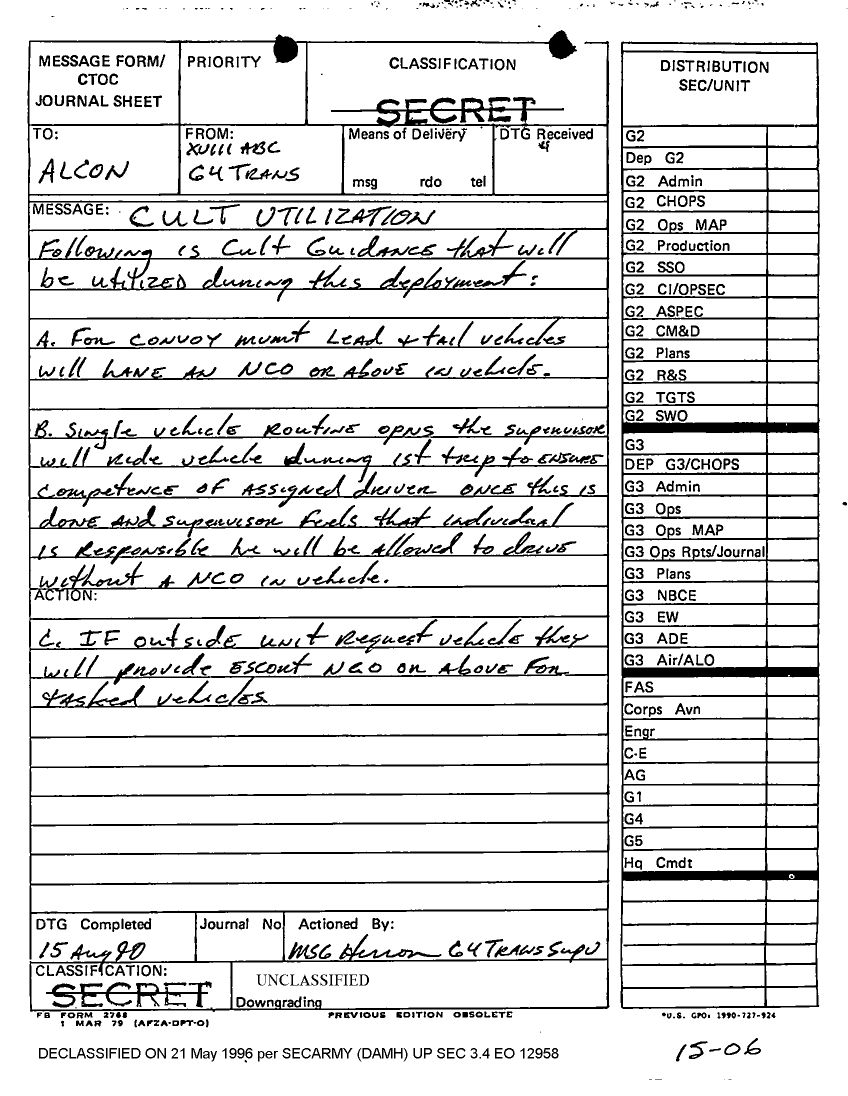 MESSAGE FORM/
CTOC
JOURNAL SHEET
PRIORITY
CLASSIFICATION
SECRET
TO:
ALCON
FROM:
XVIII ABC
G4 TRANS
Means of Delivery
msg rdo tel
DTG Received
MESSAGE: CULT UTILIZATION
Following is Cult Guidance that will
be utilized during this deployment:
A. For convoy mvmt Lead + tail vehicles
will have an NCO or above in vehicle.
B. Single vehicle routine opns the supervisor
will ride vehicle during 1st trip to ensure
competence of assigned driver once this is
done and supervisor feels that individual
is responsible he will be allowed to drive
without a NCO in vehicle.
ACTION:
C. If outside unit request vehicle they
will provide escort NCO or above for
tasked vehicles
DTG Completed
15 Aug 90
Journal No
Actioned By:
MSG Herron G4 Trans Supv
CLASSIFICATION:
SECRET
UNCLASSIFIED
Downgrading
FB FORM 2768
1 MAR 79 (AFZA-DPT-O)
PREVIOUS EDITION OBSOLETE
DISTRIBUTION
SEC/UNIT
G2
Dep G2
G2 Admin
G2 CHOPS
G2 Ops MAP
G2 Production
G2 SSO
G2 CI/OPSEC
G2 ASPEC
G2 CM&D
G2 Plans
G2 R&S
G2 TGTS
G2 SWO
G3
DEP G3/CHOPS
G3 Admin
G3 Ops
G3 Ops MAP
G3 Ops Rpts/Journal
G3 Plans
G3 NBCE
G3 EW
G3 ADE
G3 Air/ALO
FAS
Corps Avn
Engr
C-E
AG
G1
G4
G5
Hq Cmdt
*U.S. GPO: 1990-727-924
DECLASSIFIED ON 21 May 1996 per SECARMY (DAMH) UP SEC 3.4 EO 12958
15-06